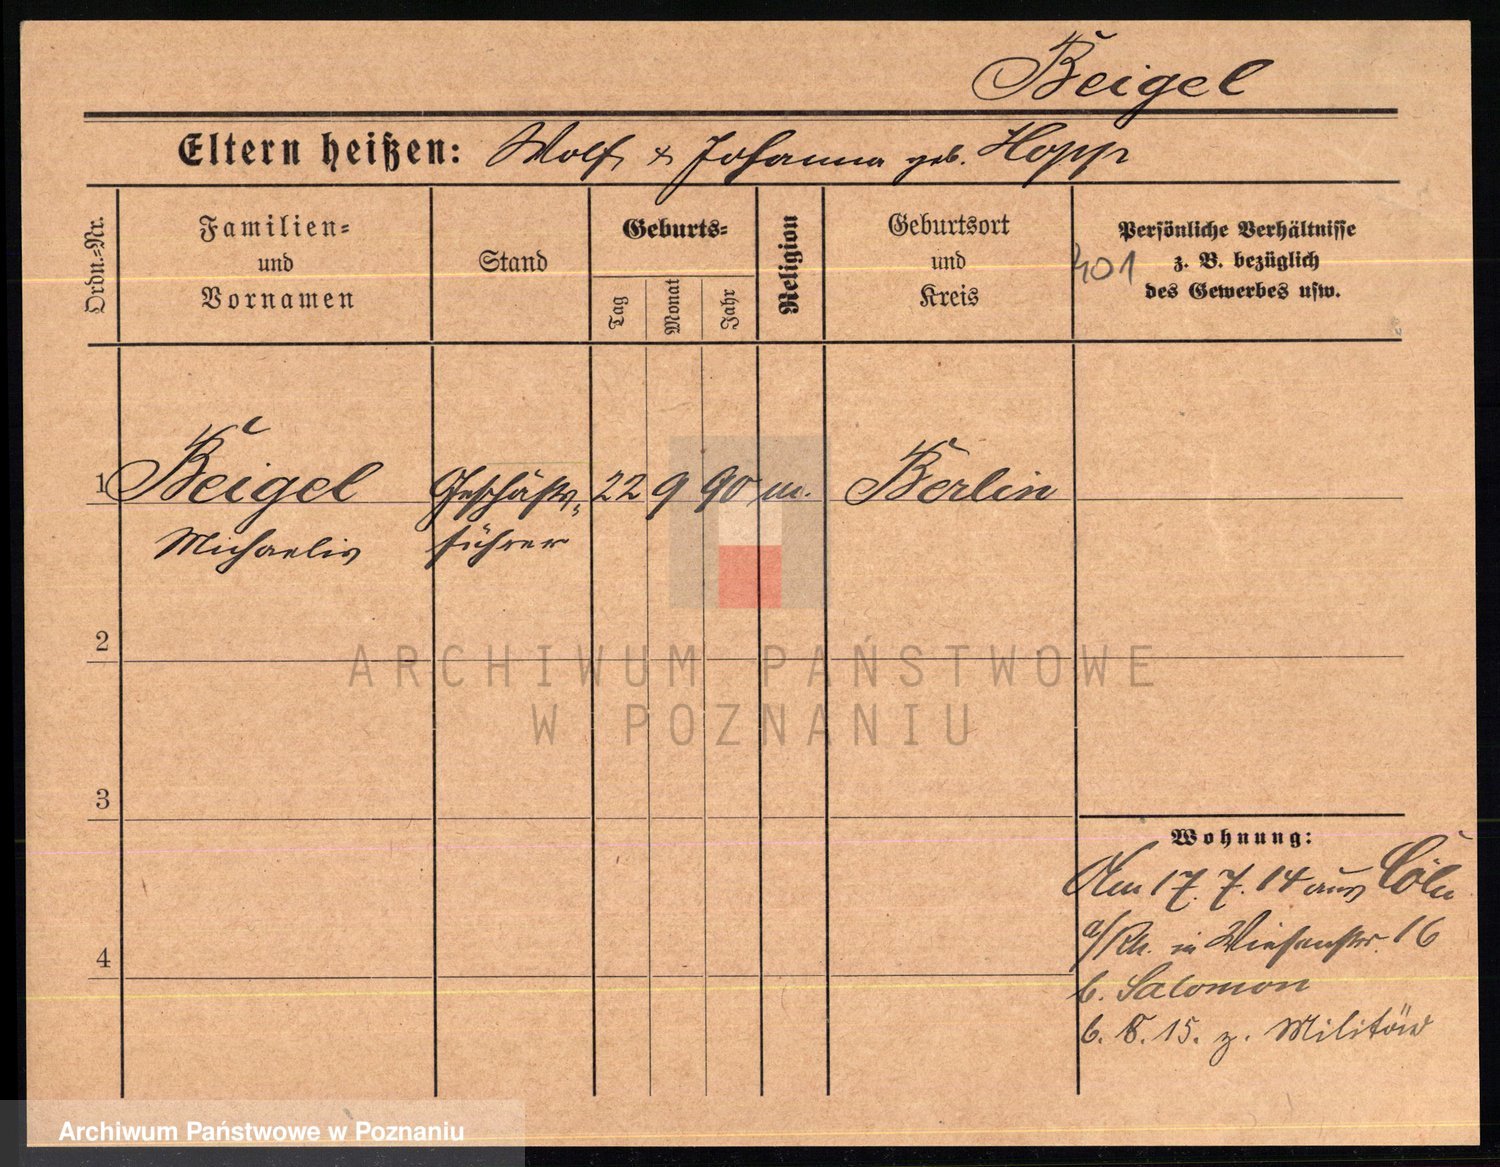 Beigel
Eltern heißen: Wolf & Johanna geb. Hopp
Ordn.-Nr.
Familien-
und
Vornamen
Stand
Geburts-
Tag
Monat
Jahr
Religion
Geburtsort
und
Kreis
401
Persönliche Verhältnisse
z. B. bezüglich
des Gewerbes usw.
1 Beigel Geschäfts- 22 9 90 m. Berlin
Michaelis führer
2
3
4
Wohnung:
Am 17. 7. 14 aus Cöln
a/Rh. in Wiesenstr. 16
b. Salomon
6. 8. 15. z. Militär
ARCHIWUM PAŃSTWOWE
W POZNANIU
Archiwum Państwowe w Poznaniu